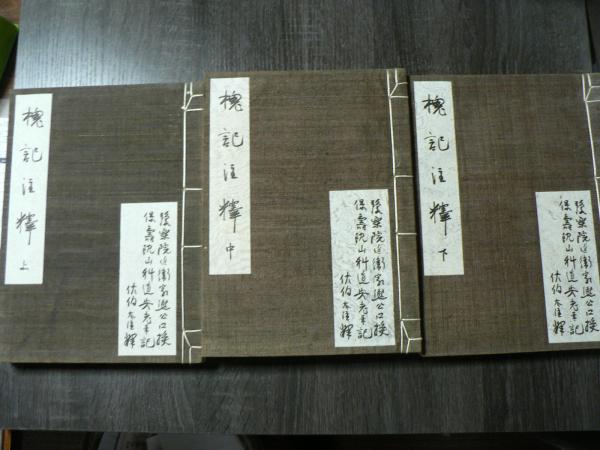 槐記注釋 上
豫樂院近衛家熙公口授
保壽院山科道安老筆記
佐伯太注釋
槐記注釋 中
豫樂院近衛家熙公口授
保壽院山科道安老筆記
佐伯太注釋
槐記注釋 下
豫樂院近衛家熙公口授
保壽院山科道安老筆記
佐伯太注釋